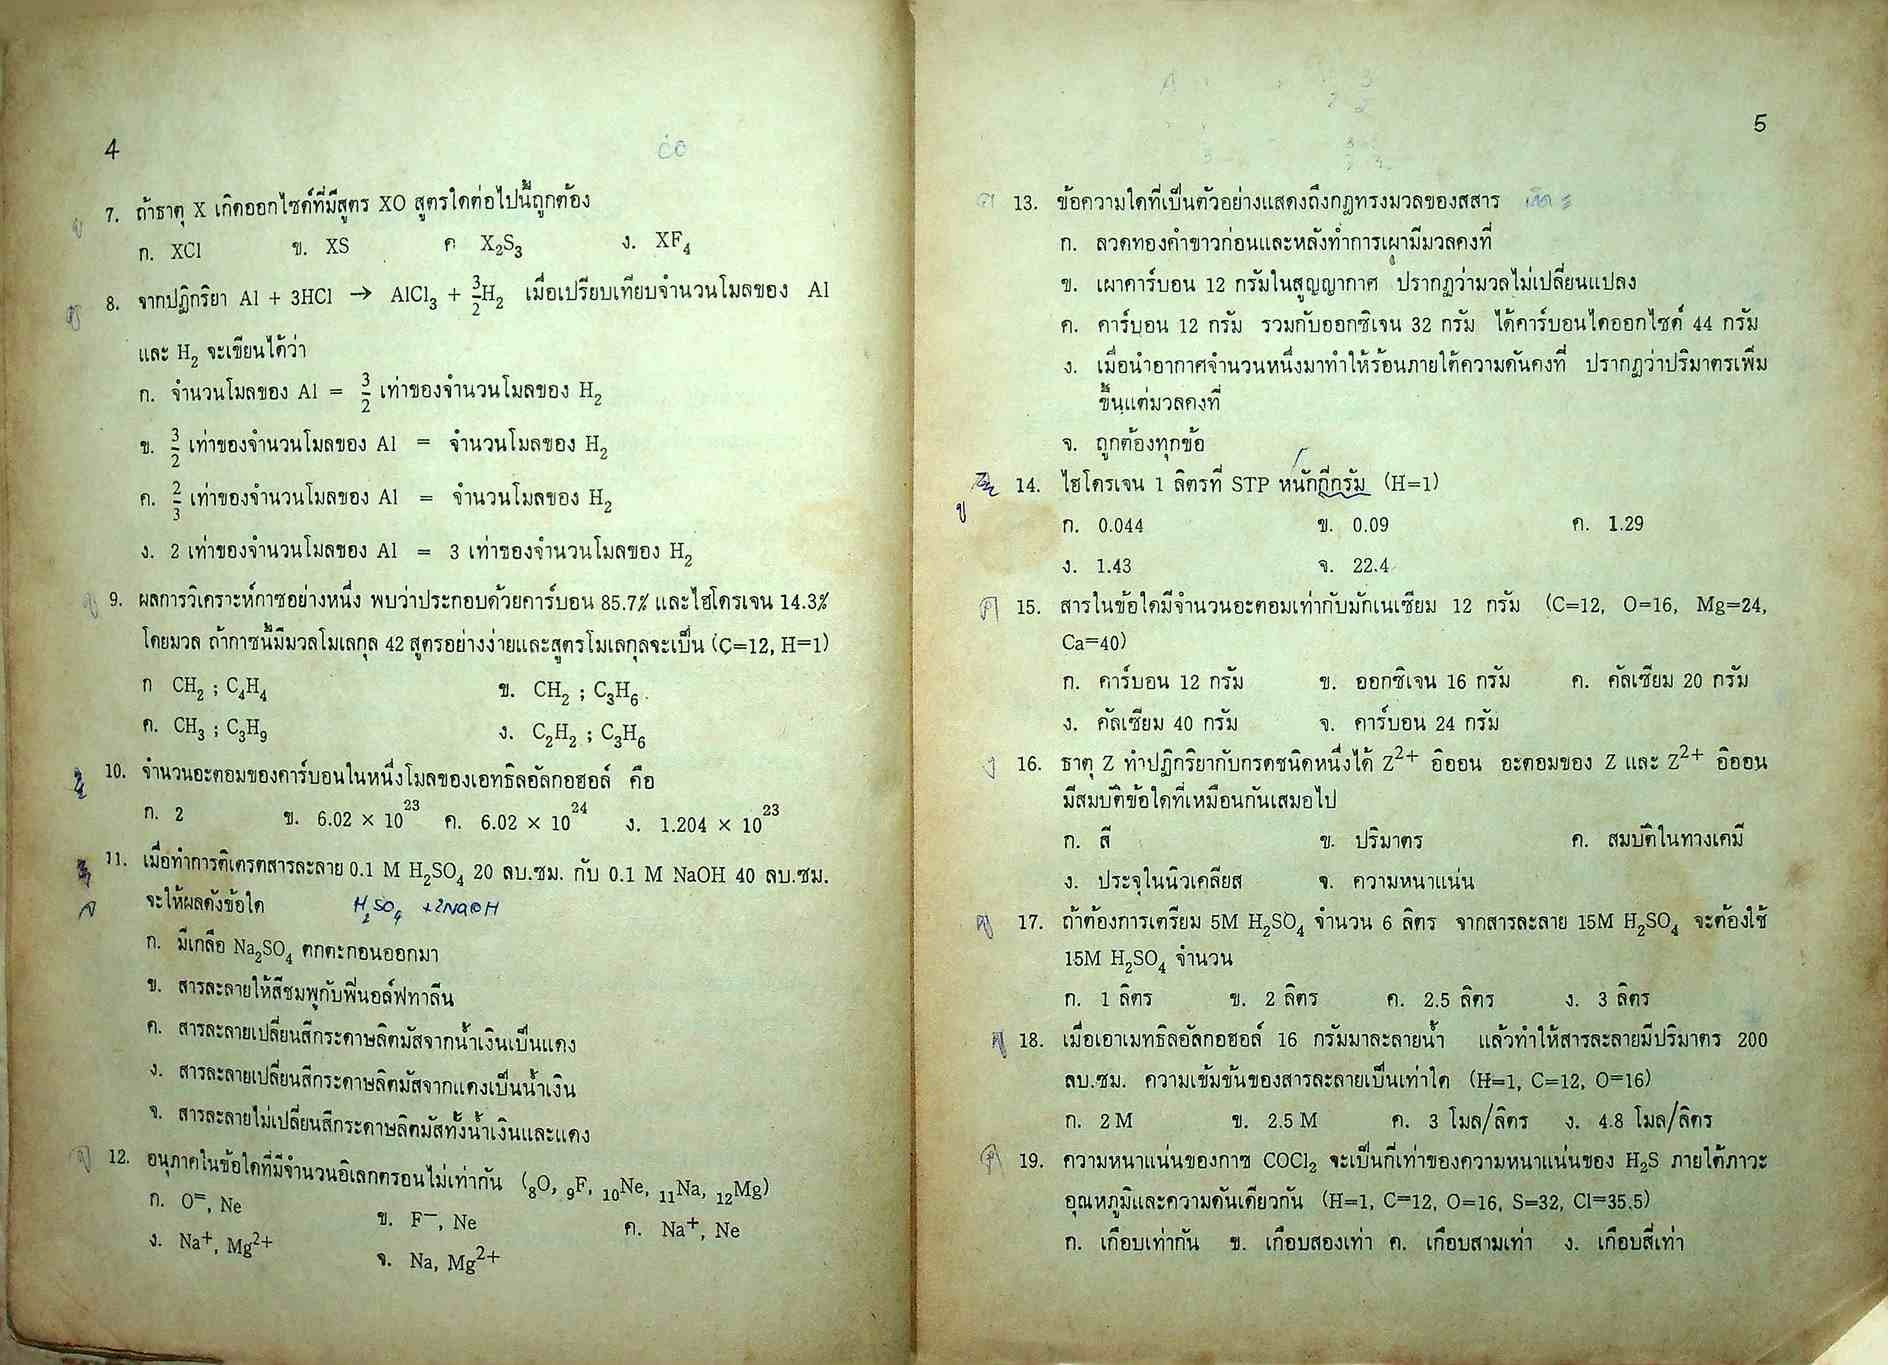 4
7. ถ้าธาตุ X เกิดออกไซด์ที่มีสูตร XO สูตรใดต่อไปนี้ถูกต้อง
ก. XCl ข. XS ค X₂S₃ ง. XF₄
8. จากปฏิกริยา Al + 3HCl → AlCl₃ + 3/2H₂ เมื่อเปรียบเทียบจำนวนโมลของ Al
และ H₂ จะเขียนได้ว่า
ก. จำนวนโมลของ Al = 3/2 เท่าของจำนวนโมลของ H₂
ข. 3/2 เท่าของจำนวนโมลของ Al = จำนวนโมลของ H₂
ค. 2/3 เท่าของจำนวนโมลของ Al = จำนวนโมลของ H₂
ง. 2 เท่าของจำนวนโมลของ Al = 3 เท่าของจำนวนโมลของ H₂
9. ผลการวิเคราะห์กาซอย่างหนึ่ง พบว่าประกอบด้วยคาร์บอน 85.7% และไฮโดรเจน 14.3%
โดยมวล ถ้ากาซนี้มีมวลโมเลกุล 42 สูตรอย่างง่ายและสูตรโมเลกุลจะเป็น (C=12, H=1)
ก CH₂ ; C₄H₄ ข. CH₂ ; C₃H₆
ค. CH₃ ; C₃H₉ ง. C₂H₂ ; C₃H₆
10. จำนวนอะตอมของคาร์บอนในหนึ่งโมลของเอทธิลอัลกอฮอล์ คือ
ก. 2 ข. 6.02 × 10²³ ค. 6.02 × 10²⁴ ง. 1.204 × 10²³
11. เมื่อทำการติเตรตสารละลาย 0.1 M H₂SO₄ 20 ลบ.ซม. กับ 0.1 M NaOH 40 ลบ.ซม.
จะให้ผลดังข้อใด H₂SO₄ +2NaOH
ก. มีเกลือ Na₂SO₄ ตกตะกอนออกมา
ข. สารละลายให้สีชมพูกับฟีนอล์ฟทาลีน
ค. สารละลายเปลี่ยนสีกระดาษลิตมัสจากน้ำเงินเป็นแดง
ง. สารละลายเปลี่ยนสีกระดาษลิตมัสจากแดงเป็นน้ำเงิน
จ. สารละลายไม่เปลี่ยนสีกระดาษลิตมัสทั้งน้ำเงินและแดง
12. อนุภาคในข้อใดที่มีจำนวนอิเลกตรอนไม่เท่ากัน (₈O, ₉F, ₁₀Ne, ₁₁Na, ₁₂Mg)
ก. O⁼, Ne ข. F⁻, Ne ค. Na⁺, Ne
ง. Na⁺, Mg²⁺ จ. Na, Mg²⁺
5
13. ข้อความใดที่เป็นตัวอย่างแสดงถึงกฎทรงมวลของสสาร
ก. ลวดทองคำขาวก่อนและหลังทำการเผามีมวลคงที่
ข. เผาคาร์บอน 12 กรัมในสูญญากาศ ปรากฏว่ามวลไม่เปลี่ยนแปลง
ค. คาร์บอน 12 กรัม รวมกับออกซิเจน 32 กรัม ได้คาร์บอนไดออกไซด์ 44 กรัม
ง. เมื่อนำอากาศจำนวนหนึ่งมาทำให้ร้อนภายใต้ความดันคงที่ ปรากฏว่าปริมาตรเพิ่ม
ขึ้นแต่มวลคงที่
จ. ถูกต้องทุกข้อ
14. ไฮโดรเจน 1 ลิตรที่ STP หนักกี่กรัม (H=1)
ข
ก. 0.044 ข. 0.09 ค. 1.29
ง. 1.43 จ. 22.4
15. สารในข้อใดมีจำนวนอะตอมเท่ากับมักเนเซียม 12 กรัม (C=12, O=16, Mg=24,
Ca=40)
ก. คาร์บอน 12 กรัม ข. ออกซิเจน 16 กรัม ค. คัลเซียม 20 กรัม
ง. คัลเซียม 40 กรัม จ. คาร์บอน 24 กรัม
16. ธาตุ Z ทำปฏิกริยากับกรดชนิดหนึ่งได้ Z²⁺ อิออน อะตอมของ Z และ Z²⁺ อิออน
มีสมบัติข้อใดที่เหมือนกันเสมอไป
ก. สี ข. ปริมาตร ค. สมบัติในทางเคมี
ง. ประจุในนิวเคลียส จ. ความหนาแน่น
17. ถ้าต้องการเตรียม 5M H₂SO₄ จำนวน 6 ลิตร จากสารละลาย 15M H₂SO₄ จะต้องใช้
15M H₂SO₄ จำนวน
ก. 1 ลิตร ข. 2 ลิตร ค. 2.5 ลิตร ง. 3 ลิตร
18. เมื่อเอาเมทธิลอัลกอฮอล์ 16 กรัมมาละลายน้ำ แล้วทำให้สารละลายมีปริมาตร 200
ลบ.ซม. ความเข้มข้นของสารละลายเป็นเท่าใด (H=1, C=12, O=16)
ก. 2 M ข. 2.5 M ค. 3 โมล/ลิตร ง. 4.8 โมล/ลิตร
19. ความหนาแน่นของกาซ COCl₂ จะเป็นกี่เท่าของความหนาแน่นของ H₂S ภายใต้ภาวะ
อุณหภูมิและความดันเดียวกัน (H=1, C=12, O=16, S=32, Cl=35.5)
ก. เกือบเท่ากัน ข. เกือบสองเท่า ค. เกือบสามเท่า ง. เกือบสี่เท่า